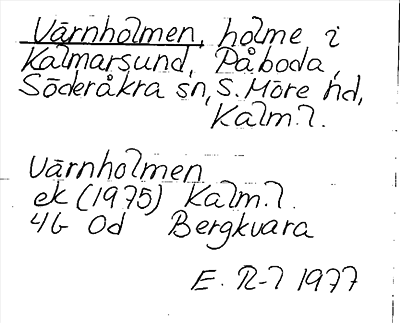 Värnholmen, holme i
Kalmarsund, Påboda,
Söderåkra sn, S. Möre hd,
Kalm. l.
Värnholmen
ek (1975) Kalm. l.
4G 0d Bergkvara
E. R-l 1977